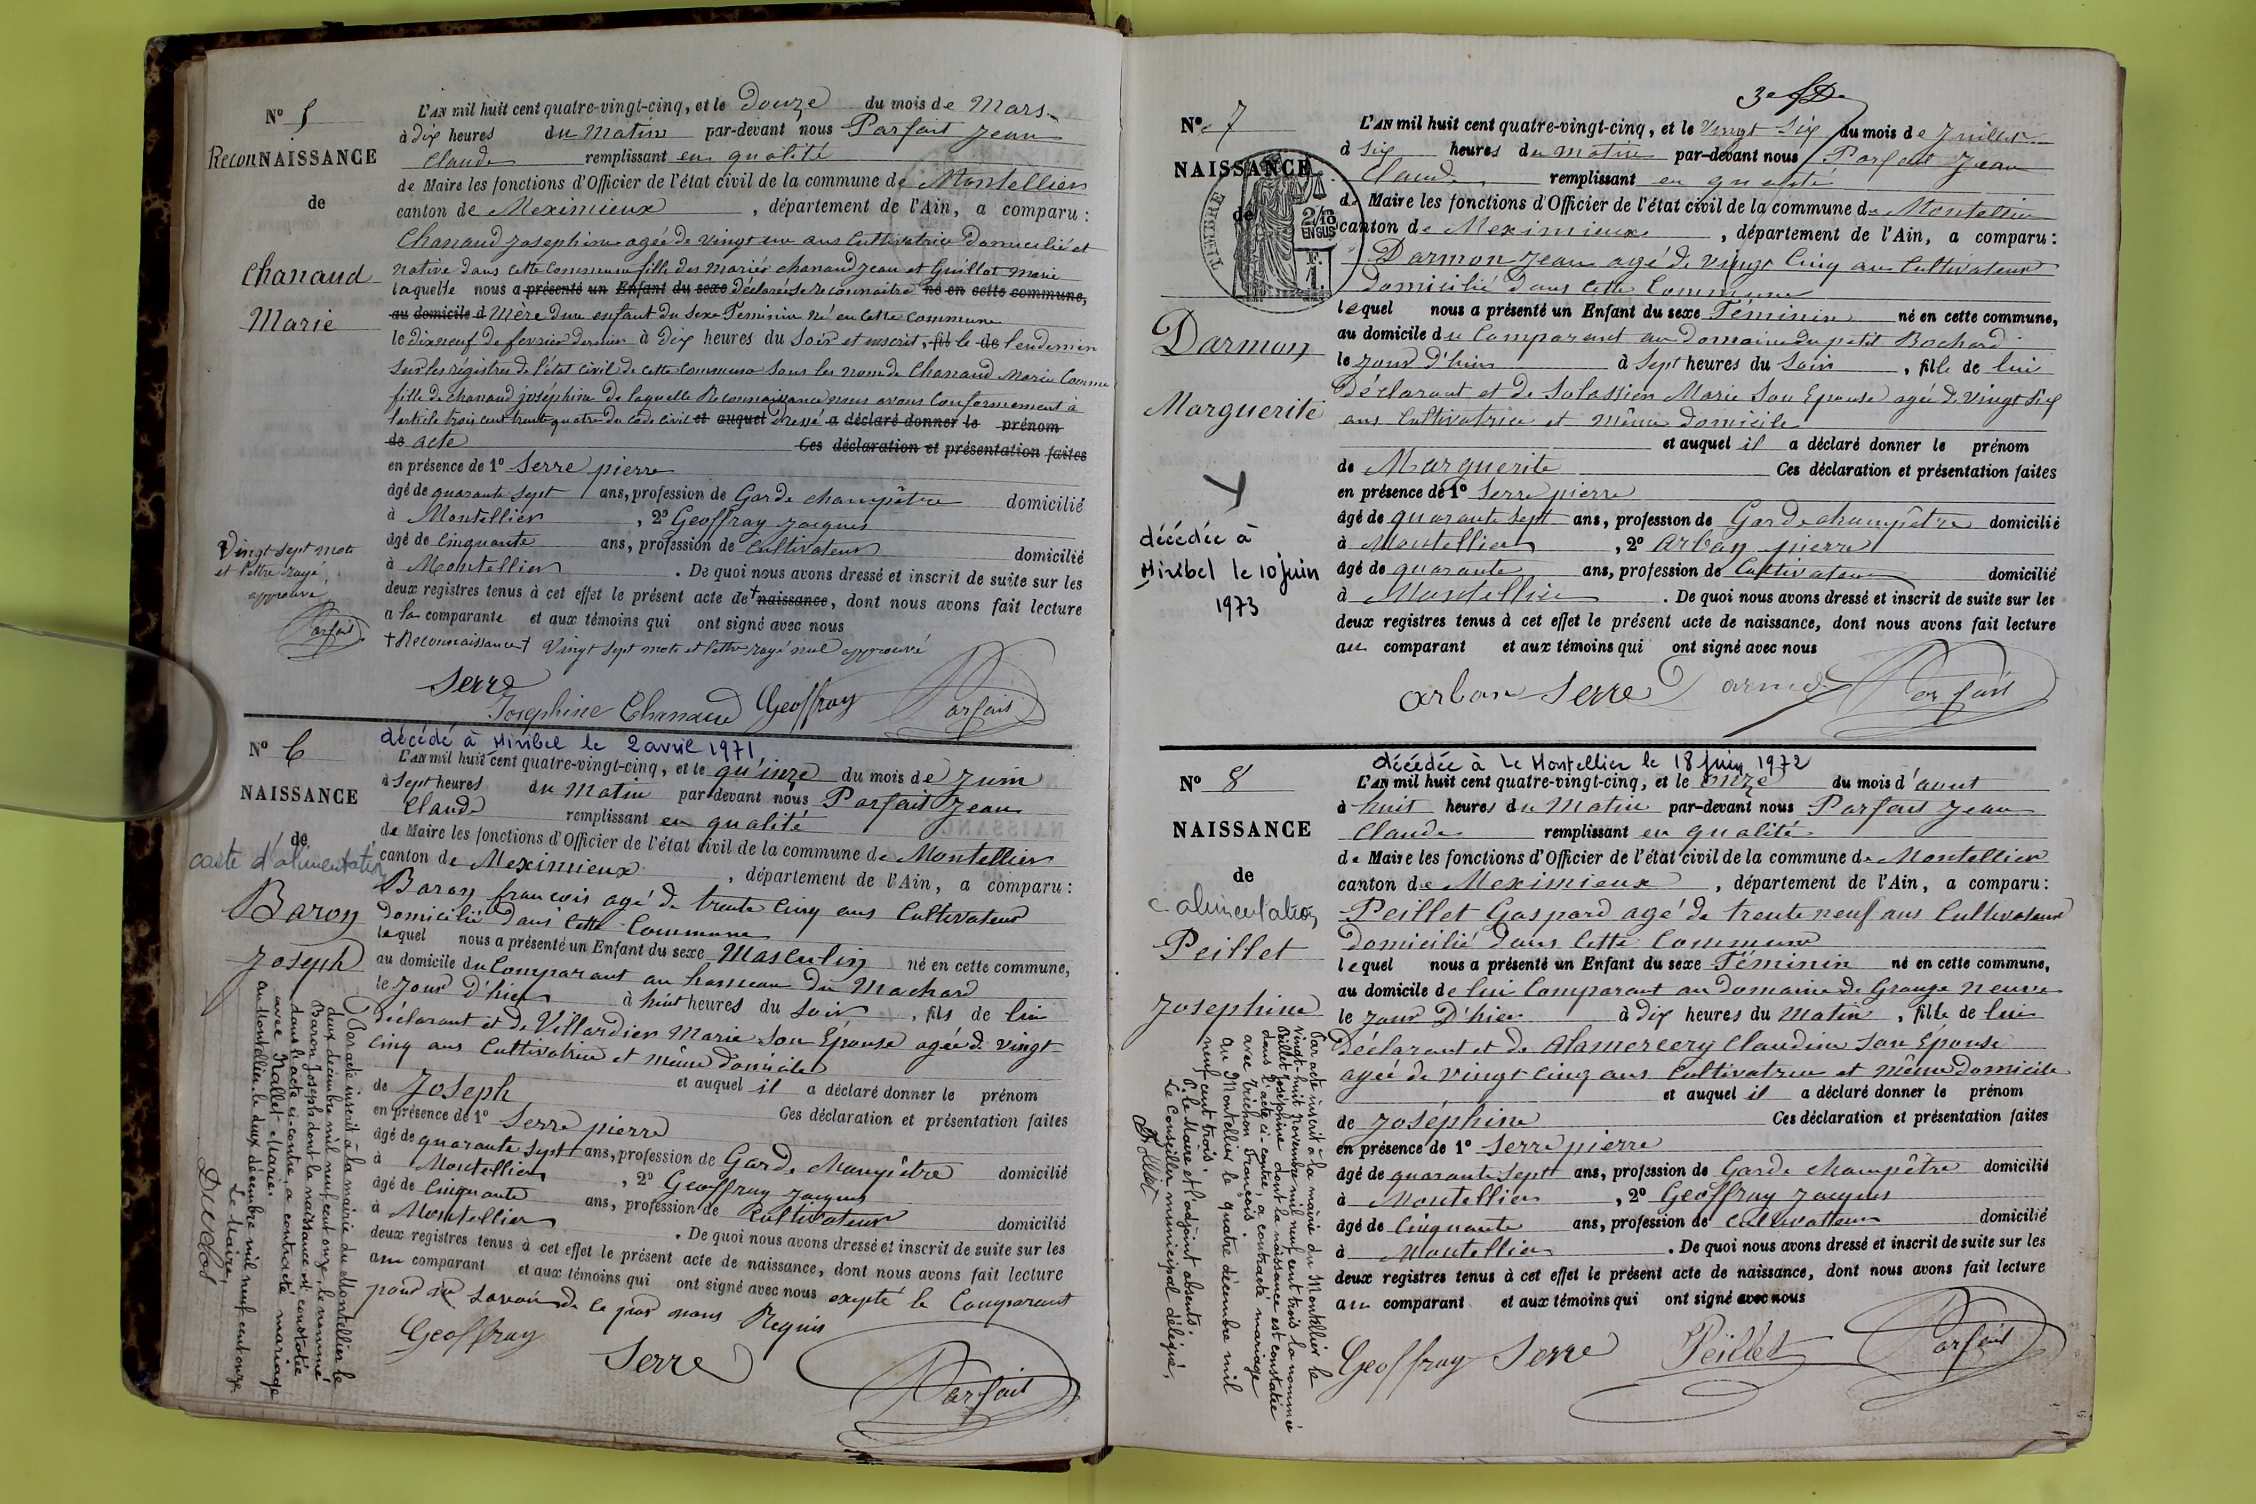 N° 5
RecoNNAISSANCE
de
Chanaud
Marie
L'AN mil huit cent quatre-vingt-cinq, et le Douze du mois de Mars
à Dix heures du Matin par-devant nous Parfait Jean
Claude remplissant en qualité
de Maire les fonctions d'Officier de l'état civil de la commune de Montellier
canton de Meximieux, département de l'Ain, a comparu :
Chanaud Josephine agée de vingt un ans Cultivatrice Domicilié et
native dans cette Commune fille des mariés chanaud Jean et Guillot Marie
laquelle nous a présenté un Enfant du sexe déclaré se reconnaitre né en cette commune,
au domicile d Mère d'une enfant du sexe Féminin né en cette commune
le dixneuf de fevrier dernier à dix heures du Soir et inscrit, fil le de lendemin
sur les régistres de l'état civil de cette commune sous les nom de Chanaud Marie Comme
fille de chanaud joséphine de laquelle Reconnaissance nous avons Conformement à
l'article trois cent trente quatre du code civil et auquel dressé a déclaré donner le prénom
de acte Ces déclaration et présentation faites
en présence de 1° Serre pierre
âgé de quarante sept ans, profession de Garde champêtre domicilié
à Montellier, 2° Geoffray Jacques
âgé de Cinquante ans, profession de Cultivateur domicilié
à Montellier. De quoi nous avons dressé et inscrit de suite sur les
deux registres tenus à cet effet le présent acte de + naissance, dont nous avons fait lecture
a la comparante et aux témoins qui ont signé avec nous
+ Reconnaissance + Vingt sept mots et lettre rayé nul approuvé
Vingt sept mots
et lettre rayé
approuvé
Parfait
Serre
Joséphine Chanaud Geoffray Parfait
décédé à Miribel le 2 avril 1971
N° 6
NAISSANCE
de
carte d'alimentation
Baron
Joseph
L'AN mil huit cent quatre-vingt-cinq, et le qu'inze du mois de Juin
à Sept heures du Matin par-devant nous Parfait Jean
Claude remplissant en qualité
de Maire les fonctions d'Officier de l'état civil de la commune de Montellier
canton de Meximieux, département de l'Ain, a comparu :
Baron francois agé de trente Cinq ans Cultivateur
domicilié dans Cette Commune
lequel nous a présenté un Enfant du sexe Masculin né en cette commune,
au domicile du Comparant au hameau du Machard
le Jour d'hier à huit heures du Soir, fils de lui
Déclarant et de Villardier Marie Son Épouse agée de vingt
Cinq ans Cultivatrice et même Domicile
et auquel il a déclaré donner le prénom
de Joseph Ces déclaration et présentation faites
en présence de 1° Serre pierre
âgé de quarante Sept ans, profession de Garde Champêtre domicilié
à Montellier, 2° Geoffray Jacques
âgé de Cinquante ans, profession de Cultivateur domicilié
à Montellier. De quoi nous avons dressé et inscrit de suite sur les
deux registres tenus à cet effet le présent acte de naissance, dont nous avons fait lecture
au comparant et aux témoins qui ont signé avec nous exepté le Comparant
pour ne savoir de ce par nous Requis
Geoffray Serre Parfait
Par acte inscrit à la mairie du Montellier le
deux décembre mil neuf cent onze, le nommé
Baron Joseph dont la naissance est constatée
dans l'acte ci-contre, a contracté mariage
avec Rallet Marie.
au Montellier, le deux décembre mil neuf cent onze
Le Maire,
Duclos
N° 7
NAISSANCE
de
TIMBRE
2/10 EN SUS
F. 1.
Darmon
Marguerite
décédée à
Miribel le 10 juin
1973
L'AN mil huit cent quatre-vingt-cinq, et le Vingt Six du mois de Juillet
à six heures du matin par-devant nous Parfait Jean
Claude remplissant en qualité
de Maire les fonctions d'Officier de l'état civil de la commune de Montellier
canton de Meximieux, département de l'Ain, a comparu :
Darmon Jean agé de vingt Cinq ans Cultivateur
domicilié dans Cette Commune
lequel nous a présenté un Enfant du sexe Féminin né en cette commune,
au domicile du Comparant au Domaine du petit Bochard
le jour d'hier à sept heures du Soir, fille de lui
déclarant et de Salassien Marie Son Epouse agée de vingt Six
ans Cultivatrice et même domicile
et auquel il a déclaré donner le prénom
de Marguerite Ces déclaration et présentation faites
en présence de 1° Serre pierre
âgé de quarante Sept ans, profession de Garde champêtre domicilié
à Montellier, 2° Arban pierre
âgé de quarante ans, profession de Cultivateur domicilié
à Montellier. De quoi nous avons dressé et inscrit de suite sur les
deux registres tenus à cet effet le présent acte de naissance, dont nous avons fait lecture
au comparant et aux témoins qui ont signé avec nous
Arban Serre Darmon Parfait
décédée à Le Montellier le 18 juin 1972
N° 8
NAISSANCE
de
c. alimentation
Peillet
Josephine
L'AN mil huit cent quatre-vingt-cinq, et le onze du mois d'aout
à huit heures du Matin par-devant nous Parfait Jean
Claude remplissant en qualité
de Maire les fonctions d'Officier de l'état civil de la commune de Montellier
canton de Meximieux, département de l'Ain, a comparu :
Peillet Gaspard agé de trente neuf ans Cultivateur
Domicilié dans Cette Commune
lequel nous a présenté un Enfant du sexe Féminin né en cette commune,
au domicile de lui Comparant au Domaine de Grange neuve
le jour D'hier à dix heures du Matin, fille de lui
déclarant et de Alamercery Claudine Son Épouse
agée de vingt Cinq ans Cultivatrice et même Domicile
et auquel il a déclaré donner le prénom
de Joséphine Ces déclaration et présentation faites
en présence de 1° Serre pierre
âgé de quarante Sept ans, profession de Garde champêtre domicilié
à Montellier, 2° Geoffray Jacques
âgé de Cinquante ans, profession de Cultivateur domicilié
à Montellier. De quoi nous avons dressé et inscrit de suite sur les
deux registres tenus à cet effet le présent acte de naissance, dont nous avons fait lecture
au comparant et aux témoins qui ont signé avec nous
Geoffray Serre Peillet Parfait
Par acte inscrit à la mairie du Montellier le
vingt-huit novembre mil neuf cent trois la nommée
Peillet Joséphine dont la naissance est constatée
dans l'acte ci-contre, a contracté mariage
avec Trichon François.
au Montellier le quatre décembre mil
neuf cent trois.
P. le Maire et l'adjoint absents.
Le Conseiller municipal délégué,